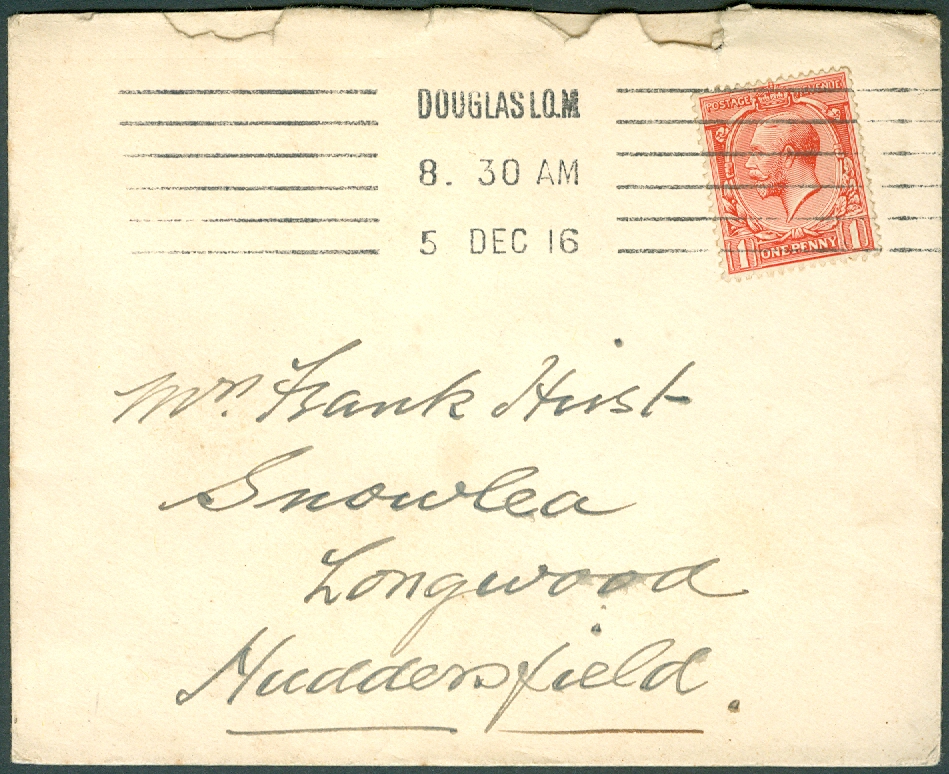 DOUGLAS I.O.M
8. 30 AM
5 DEC 16
POSTAGE REVENUE
1 ONE PENNY 1
Mrs. Frank Hirst
Snowlea
Longwood
Huddersfield.